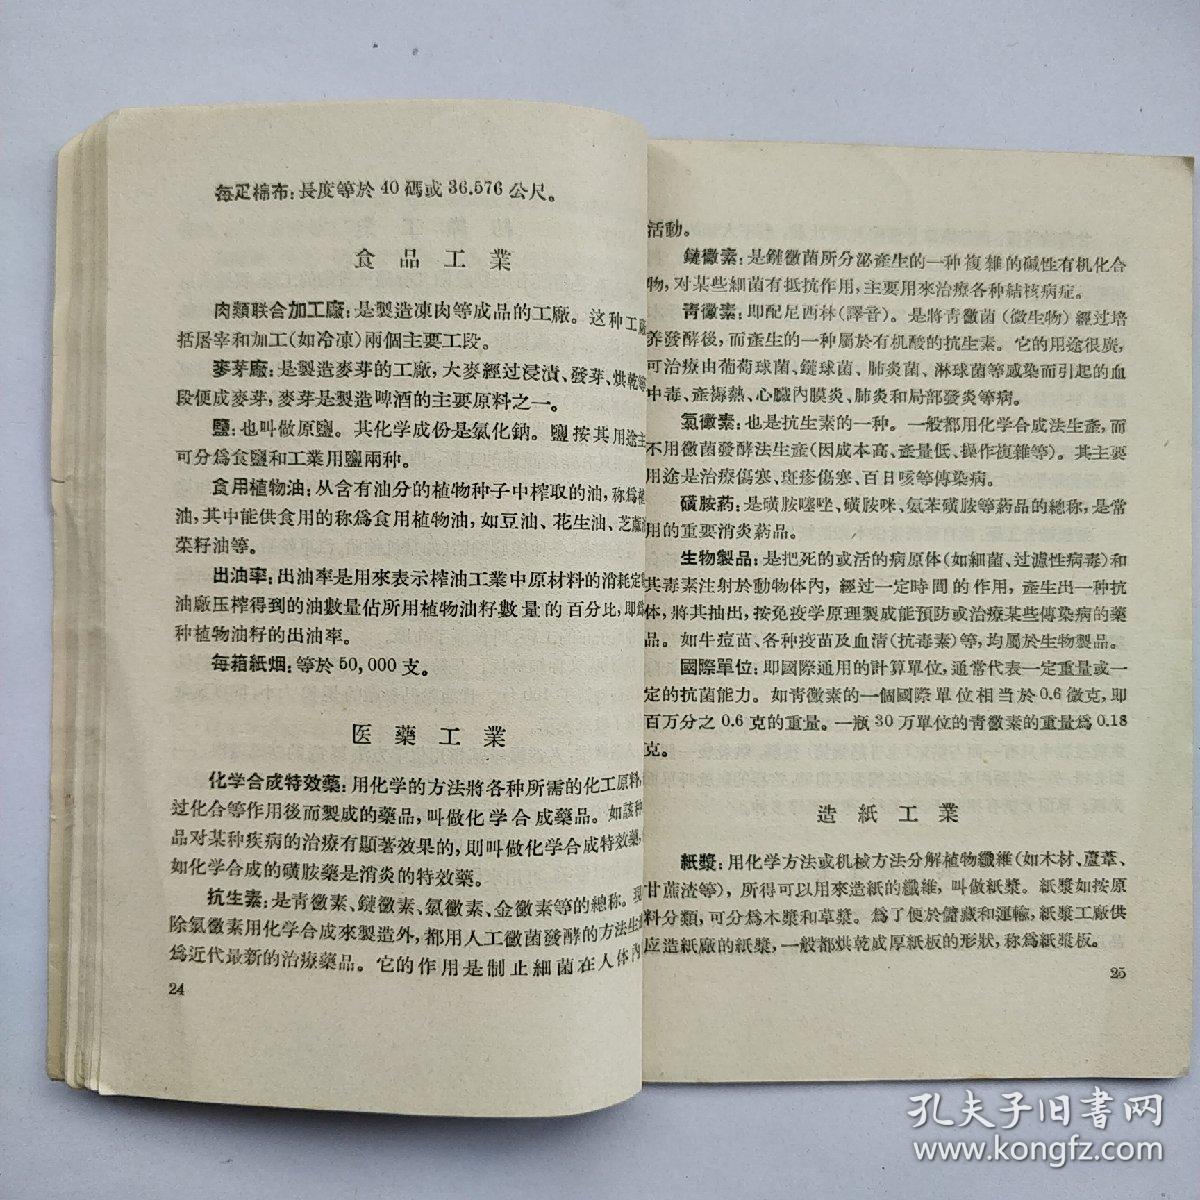 每疋棉布：長度等於 40 碼或 36.576 公尺。
食品工業
肉類联合加工廠：是製造凍肉等成品的工廠。这种工
括屠宰和加工（如冷凍）兩個主要工段。
麥芽廠：是製造麥芽的工廠，大麥經过浸漬、發芽、烘乾
段便成麥芽，麥芽是製造啤酒的主要原料之一。
鹽：也叫做原鹽。其化学成份是氯化鈉。鹽按其用途主
可分爲食鹽和工業用鹽兩种。
食用植物油：从含有油分的植物种子中榨取的油，称爲植
油，其中能供食用的称爲食用植物油，如豆油、花生油、芝蔴
菜籽油等。
出油率：出油率是用來表示榨油工業中原材料的消耗定
油廠压榨得到的油數量佔所用植物油籽數量的百分比，即爲
种植物油籽的出油率。
每箱紙烟：等於 50,000 支。
医藥工業
化学合成特效藥：用化学的方法將各种所需的化工原料，
过化合等作用後而製成的藥品，叫做化学合成藥品。如該种
品对某种疾病的治療有顯著效果的，則叫做化学合成特效藥，
如化学合成的磺胺藥是消炎的特效藥。
抗生素：是青黴素、鏈黴素、氯黴素、金黴素等的總称。現
除氯黴素用化学合成來製造外，都用人工黴菌發酵的方法生
爲近代最新的治療藥品。它的作用是制止細菌在人体內
24
活動。
鏈黴素：是鏈黴菌所分泌產生的一种複雜的碱性有机化合
物，对某些細菌有抵抗作用，主要用來治療各种結核病症。
青黴素：即配尼西林（譯音）。是將青黴菌（微生物）經过培
养發酵後，而產生的一种屬於有机酸的抗生素。它的用途很廣，
可治療由葡萄球菌、鏈球菌、肺炎菌、淋球菌等感染而引起的血
中毒、產褥熱、心臟內膜炎、肺炎和局部發炎等病。
氯黴素：也是抗生素的一种。一般都用化学合成法生產，而
不用黴菌發酵法生產（因成本高、產量低、操作複雜等）。其主要
用途是治療傷寒、斑疹傷寒、百日咳等傳染病。
磺胺药：是磺胺噻唑、磺胺咪、氨苯磺胺等葯品的總称，是常
用的重要消炎葯品。
生物製品：是把死的或活的病原体（如細菌、过濾性病毒）和
其毒素注射於動物体內，經过一定時間的作用，產生出一种抗
体，將其抽出，按免疫学原理製成能預防或治療某些傳染病的藥
品。如牛痘苗、各种疫苗及血清（抗毒素）等，均屬於生物製品。
國際單位：即國際通用的計算單位，通常代表一定重量或一
定的抗菌能力。如青黴素的一個國際單位相当於 0.6 微克，即
百万分之 0.6 克的重量。一瓶 30 万單位的青黴素的重量爲 0.18
克。
造紙工業
紙漿：用化学方法或机械方法分解植物纖維（如木材、蘆葦、
甘蔗渣等），所得可以用來造紙的纖維，叫做紙漿。紙漿如按原
料分類，可分爲木漿和草漿。爲了便於儲藏和運輸，紙漿工廠供
应造紙廠的紙漿，一般都烘乾成厚紙板的形狀，称爲紙漿板。
25
孔夫子旧书网
www.kongfz.com